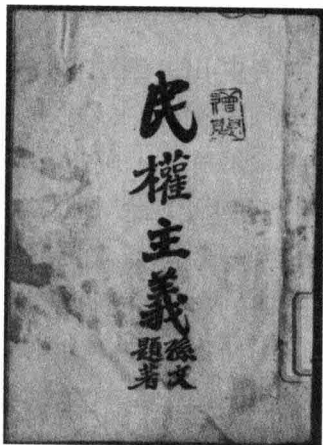 民權主義
孫文
題著